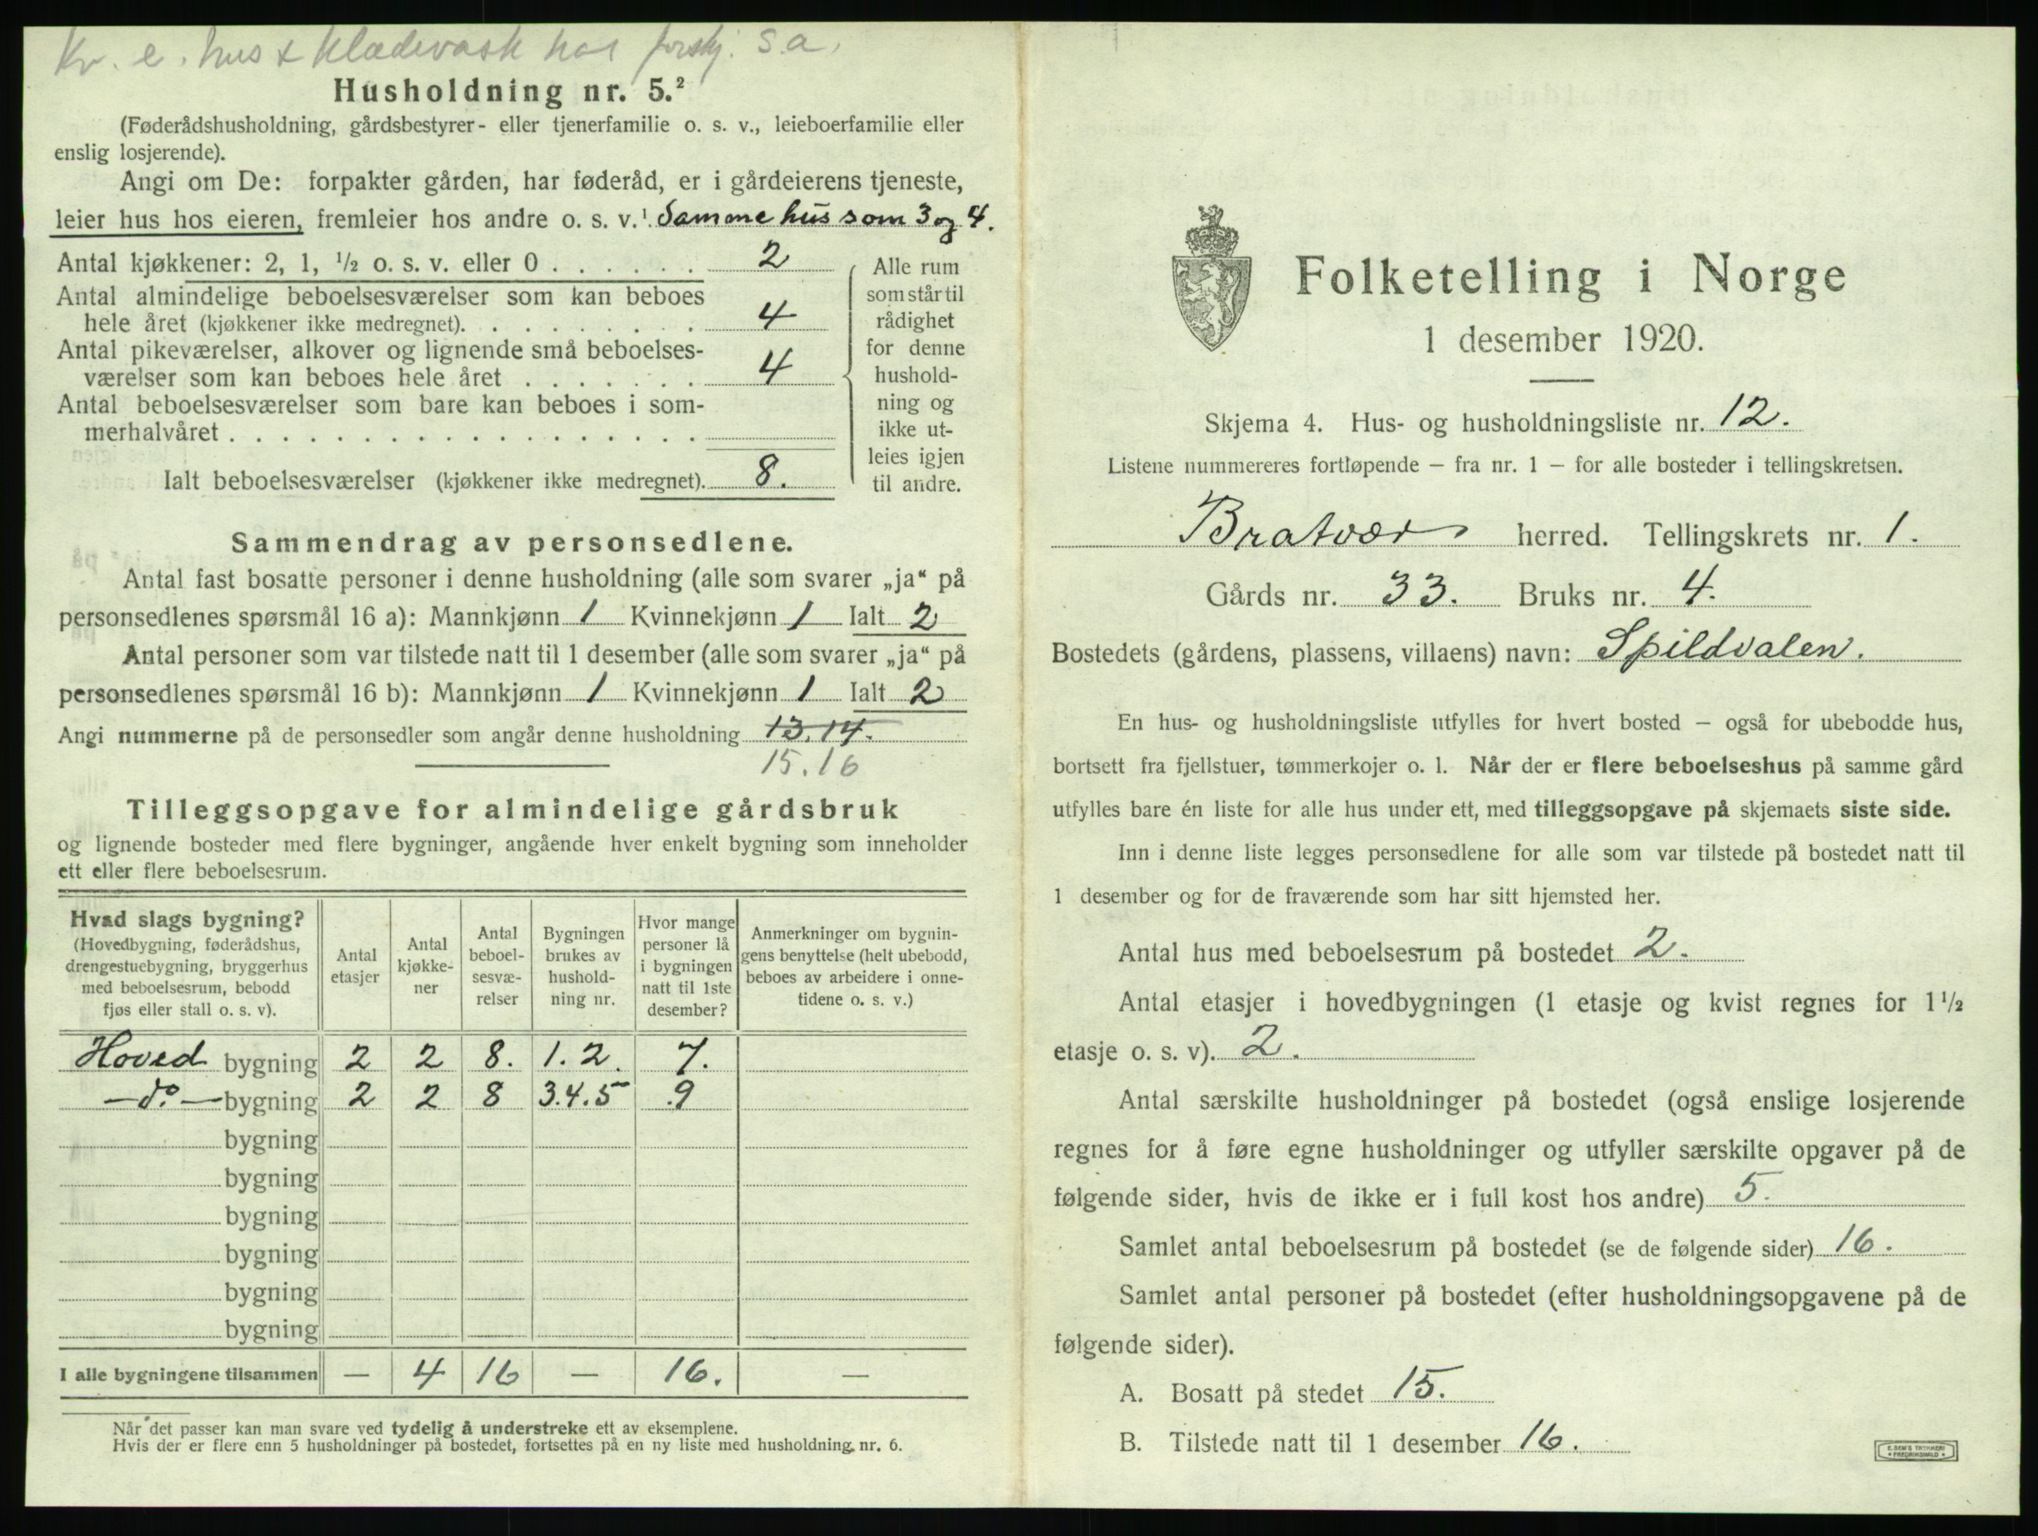 Kv. e. hus & klædevask har forskj. s.a.
Husholdning nr. 5.²
(Føderådshusholdning, gårdsbestyrer- eller tjenerfamilie o. s. v., leieboerfamilie eller
enslig losjerende).
Angi om De: forpakter gården, har føderåd, er i gårdeierens tjeneste,
leier hus hos eieren, fremleier hos andre o. s. v.¹ Samme hus som 3 og 4.
Antal kjøkkener: 2, 1, ½ o. s. v. eller 0 . . . . . . 2
Antal almindelige beboelsesværelser som kan beboes
hele året (kjøkkener ikke medregnet). . . . . . . . . 4
Antal pikeværelser, alkover og lignende små beboelses-
værelser som kan beboes hele året . . . . . . . 4
Antal beboelsesværelser som bare kan beboes i som-
merhalvåret . . . . . . . . . . . . . . . . . .
Ialt beboelsesværelser (kjøkkener ikke medregnet). 8.
Alle rum
som står til
rådighet
for denne
hushold-
ning og
ikke ut-
leies igjen
til andre.
Sammendrag av personsedlene.
Antal fast bosatte personer i denne husholdning (alle som svarer „ja“ på
personsedlenes spørsmål 16 a): Mannkjønn 1 Kvinnekjønn 1 Ialt 2
Antal personer som var tilstede natt til 1 desember (alle som svarer „ja“ på
personsedlenes spørsmål 16 b): Mannkjønn 1 Kvinnekjønn 1 Ialt 2
Angi nummerne på de personsedler som angår denne husholdning 13. 14.
15. 16
Tilleggsopgave for almindelige gårdsbruk
og lignende bosteder med flere bygninger, angående hver enkelt bygning som inneholder
ett eller flere beboelsesrum.
Hvad slags bygning?
(Hovedbygning, føderådshus,
drengestuebygning, bryggerhus
med beboelsesrum, bebodd
fjøs eller stall o. s. v).
Antal
etasjer
Antal
kjøkke-
ner
Antal
beboel-
sesvæ-
relser
Bygningen
brukes av
hushold-
ning nr.
Hvor mange
personer lå
i bygningen
natt til 1ste
desember?
Anmerkninger om bygnin-
gens benyttelse (helt ubebodd,
beboes av arbeidere i onne-
tidene o. s. v.)
Hoved bygning 2 2 8. 1. 2. 7.
—do.— bygning 2 2 8 3.4.5 9
bygning
bygning
bygning
bygning
bygning
bygning
I alle bygningene tilsammen — 4 16 — 16. —
Når det passer kan man svare ved tydelig å understreke ett av eksemplene.
Hvis der er flere enn 5 husholdninger på bostedet, fortsettes på en ny liste med husholdning nr. 6.
Folketelling i Norge
1 desember 1920.
Skjema 4. Hus- og husholdningsliste nr. 12.
Listene nummereres fortløpende – fra nr. 1 – for alle bosteder i tellingskretsen.
Bratvær herred. Tellingskrets nr. 1.
Gårds nr. 33. Bruks nr. 4.
Bostedets (gårdens, plassens, villaens) navn: Spildvalen.
En hus- og husholdningsliste utfylles for hvert bosted – også for ubebodde hus,
bortsett fra fjellstuer, tømmerkojer o. l. Når der er flere beboelseshus på samme gård
utfylles bare én liste for alle hus under ett, med tilleggsopgave på skjemaets siste side.
Inn i denne liste legges personsedlene for alle som var tilstede på bostedet natt til
1 desember og for de fraværende som har sitt hjemsted her.
Antal hus med beboelsesrum på bostedet 2.
Antal etasjer i hovedbygningen (1 etasje og kvist regnes for 1 ½
etasje o. s. v). 2.
Antal særskilte husholdninger på bostedet (også enslige losjerende
regnes for å føre egne husholdninger og utfyller særskilte opgaver på de
følgende sider, hvis de ikke er i full kost hos andre) 5.
Samlet antal beboelsesrum på bostedet (se de følgende sider) 16.
Samlet antal personer på bostedet (efter husholdningsopgavene på de
følgende sider).
A. Bosatt på stedet 15.
B. Tilstede natt til 1 desember 16.